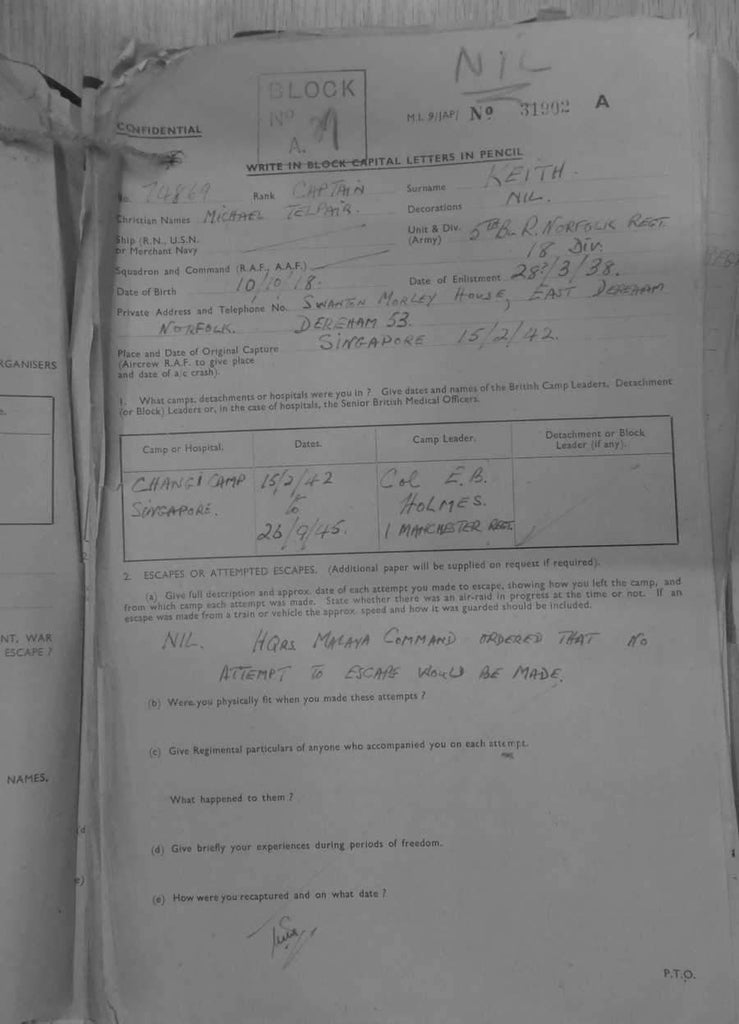 NIL
BLOCK
Nº
A.
M.I. 9/JAP/ Nº 31902 A
CONFIDENTIAL
WRITE IN BLOCK CAPITAL LETTERS IN PENCIL
No. 74869 Rank CAPTAIN Surname KEITH.
Christian Names MICHAEL TELFAIR. Decorations NIL.
Ship (R.N., U.S.N. or Merchant Navy
Unit & Div. (Army) 5TH Bn R. NORFOLK REGT.
18 DIV.
Squadron and Command (R.A.F., A.A.F.)
Date of Birth 10/10/18. Date of Enlistment 28?/3/38.
Private Address and Telephone No. SWANTON MORLEY HOUSE, EAST DEREHAM
NORFOLK. DEREHAM 53.
Place and Date of Original Capture SINGAPORE 15/2/42.
(Aircrew R.A.F. to give place
and date of a/c crash).
1. What camps, detachments or hospitals were you in ? Give dates and names of the British Camp Leaders, Detachment
(or Block) Leaders or, in the case of hospitals, the Senior British Medical Officers.
Camp or Hospital. Dates. Camp Leader. Detachment or Block Leader (if any).
CHANGI CAMP 15/2/42 COL E.B.
SINGAPORE. to HOLMES.
26/9/45. 1 MANCHESTER REGT.
2. ESCAPES OR ATTEMPTED ESCAPES. (Additional paper will be supplied on request if required).
(a) Give full description and approx. date of each attempt you made to escape, showing how you left the camp, and
from which camp each attempt was made. State whether there was an air-raid in progress at the time or not. If an
escape was made from a train or vehicle the approx. speed and how it was guarded should be included.
NIL. HQRS MALAYA COMMAND ORDERED THAT NO
ATTEMPT TO ESCAPE WOULD BE MADE.
(b) Were you physically fit when you made these attempts ?
(c) Give Regimental particulars of anyone who accompanied you on each attempt.
What happened to them ?
(d) Give briefly your experiences during periods of freedom.
(e) How were you recaptured and on what date ?
P.T.O.
RGANISERS
NT, WAR
ESCAPE ?
NAMES.